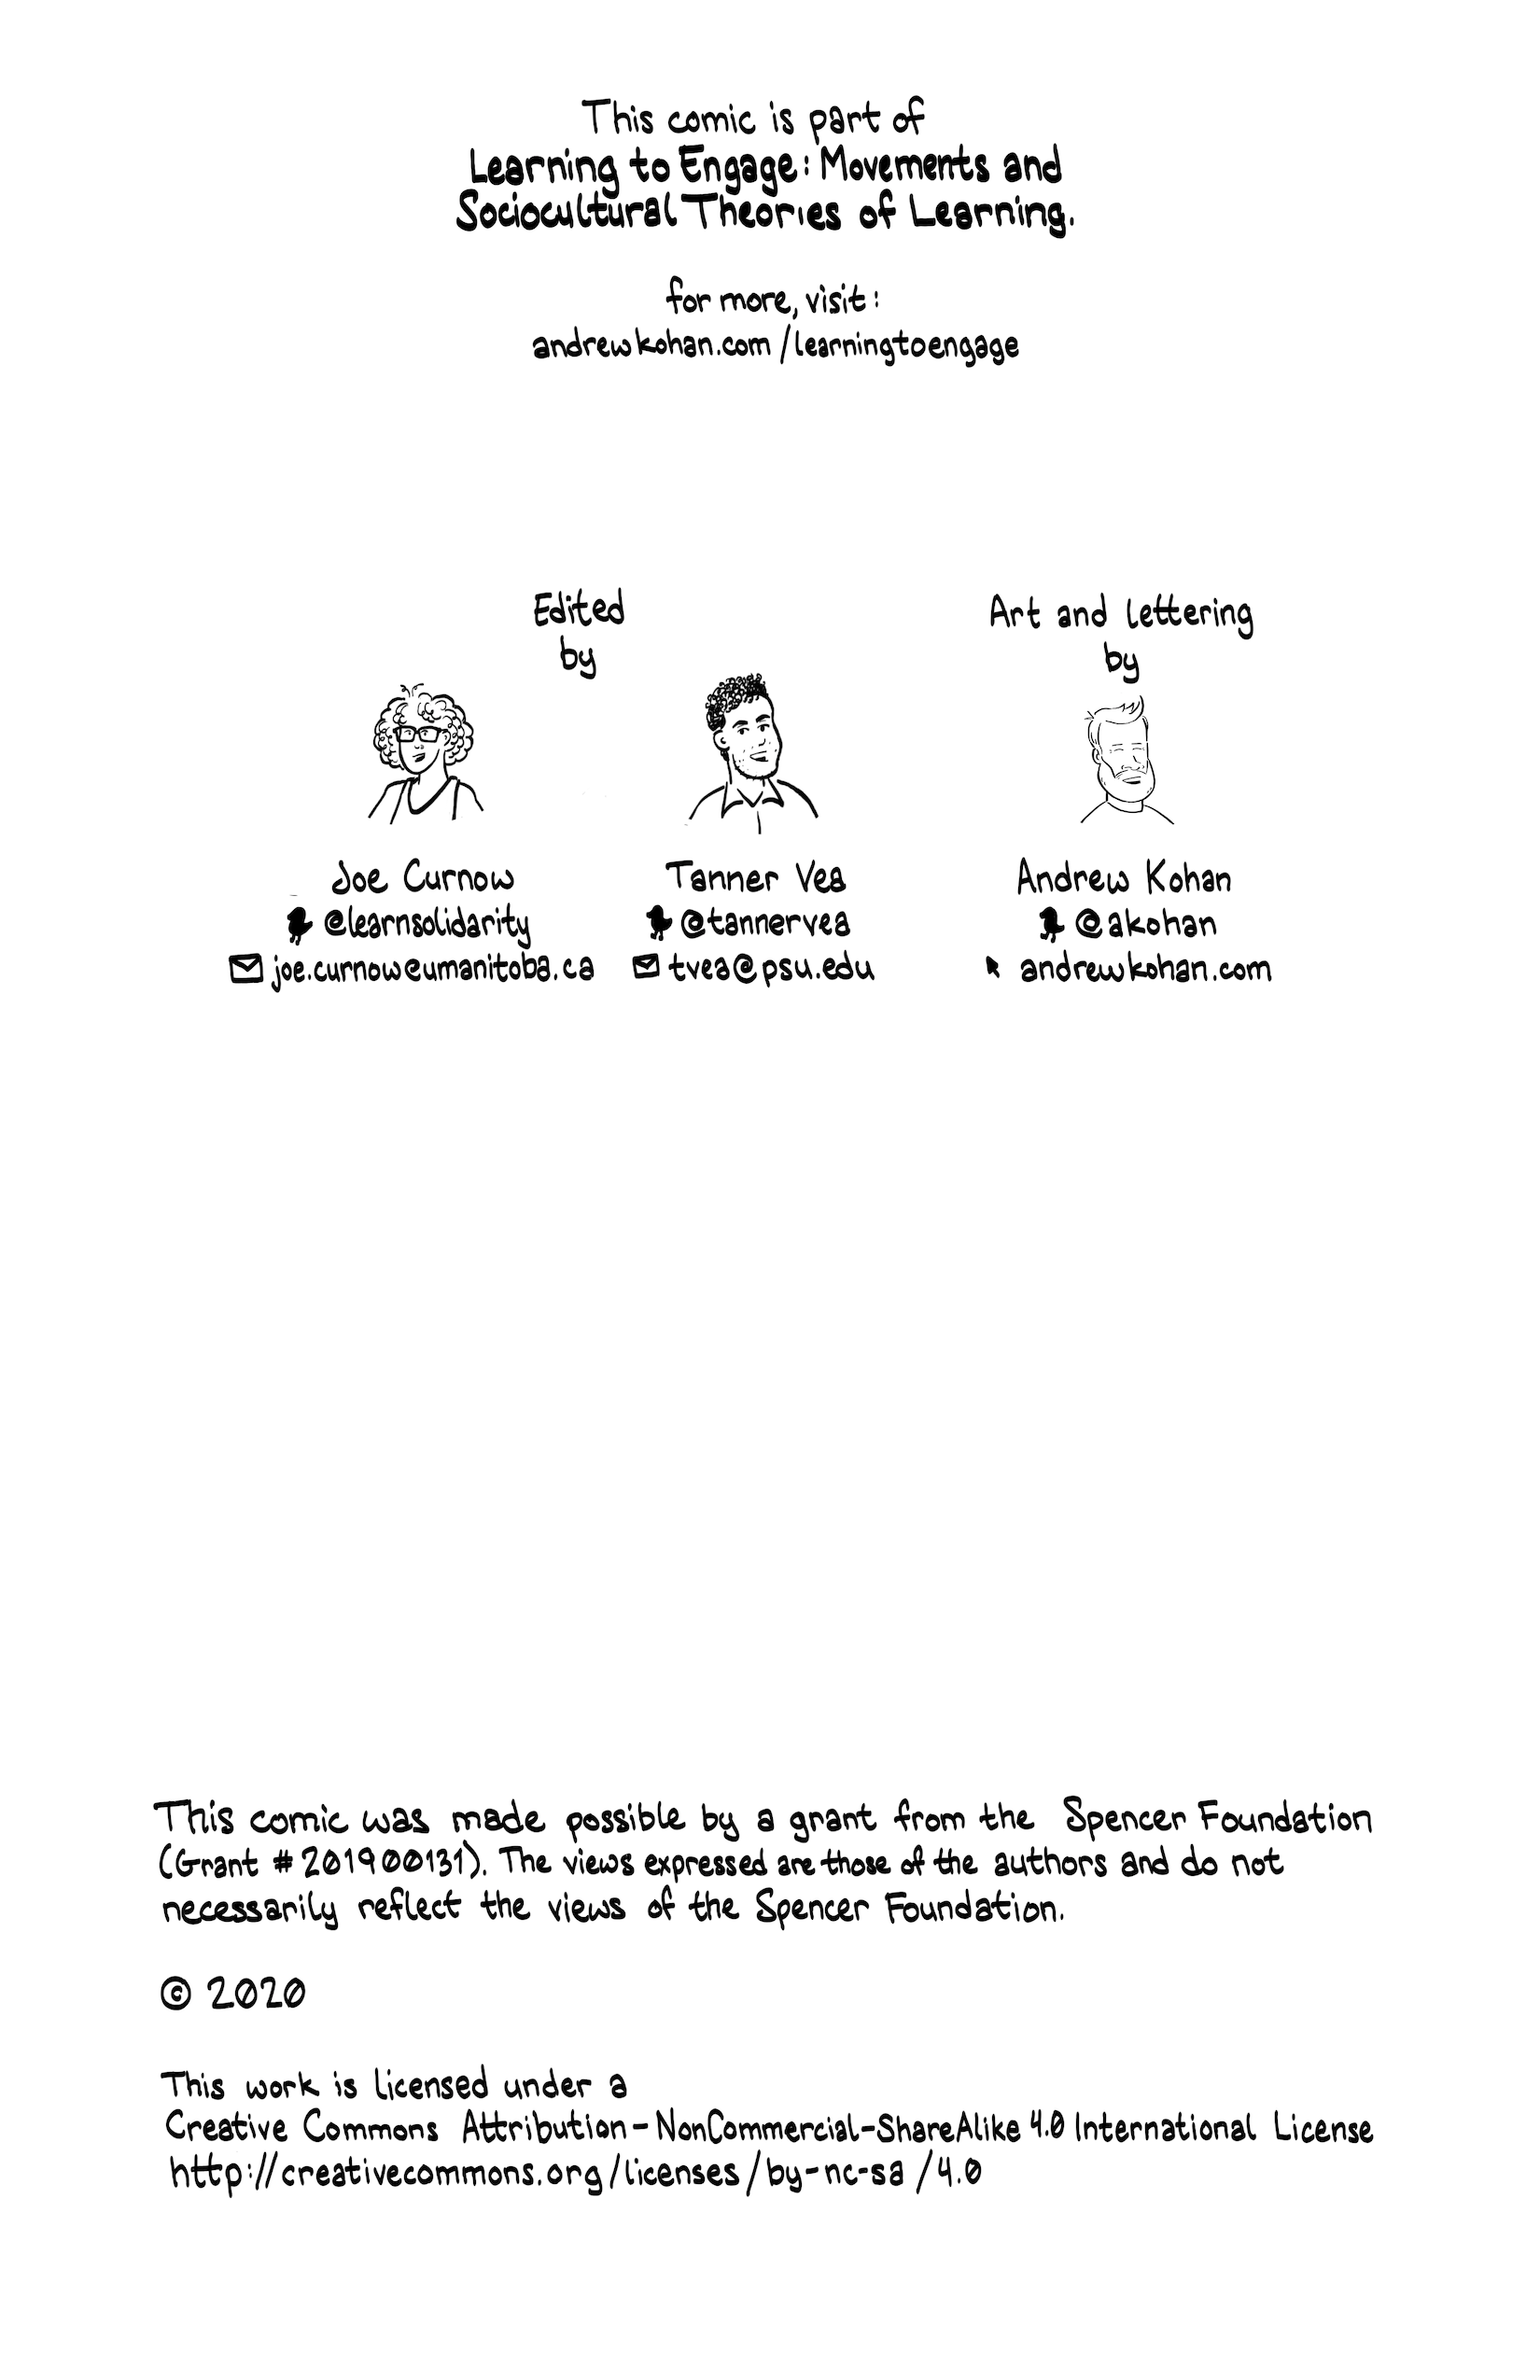 This comic is part of
Learning to Engage: Movements and
Sociocultural Theories of Learning.
for more, visit:
andrewkohan.com/learningtoengage
Edited
by
Joe Curnow
@learnsolidarity
joe.curnow@umanitoba.ca
Tanner Vea
@tannervea
tvea@psu.edu
Art and lettering
by
Andrew Kohan
@akohan
andrewkohan.com
This comic was made possible by a grant from the Spencer Foundation
(Grant #201900131). The views expressed are those of the authors and do not
necessarily reflect the views of the Spencer Foundation.
© 2020
This work is licensed under a
Creative Commons Attribution-NonCommercial-ShareAlike 4.0 International License
http://creativecommons.org/licenses/by-nc-sa/4.0